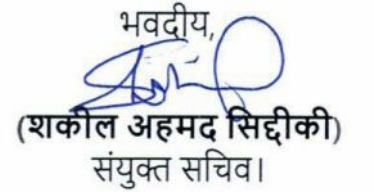 भवदीय,
(शकील अहमद सिद्दीकी)
संयुक्त सचिव।